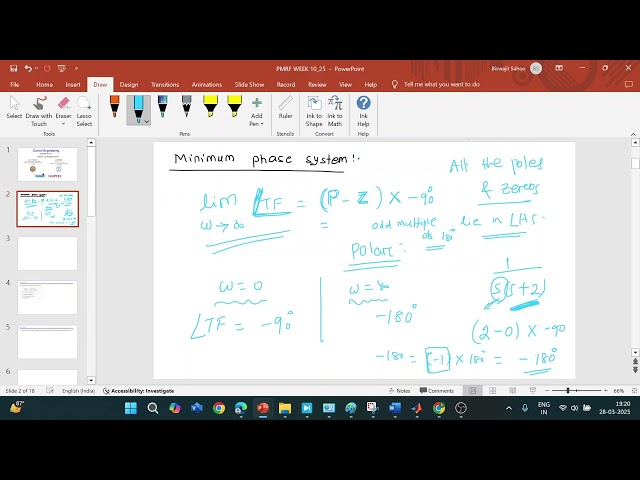 PMRF WEEK 10_25 - PowerPoint
Biswajit Sahoo
BS
File Home Insert Draw Design Transitions Animations Slide Show Review View Help
Tell me what you want to do
Share
Select
Draw with Touch
Eraser
Lasso Select
Add Pen
Ruler
Ink to Shape
Ink to Math
Ink Help
Tools
Pens
Stencils
Convert
Help
1
2
3
4
5
Minimum phase system:.
All the poles
& zeroes
lie in LHS.
lim ∠TF = (P - Z) × -90°
ω→∞ = odd multiple
of 180°
Polar:
ω = 0
∠TF = -90°
ω = ∞
-180°
1
S(S+2)
(2-0) × -90
-180 = (-1) × 180° = -180°
Slide 2 of 16 English (India) Accessibility: Investigate Notes Comments 66%
87°
ENG
IN
19:20
28-03-2025